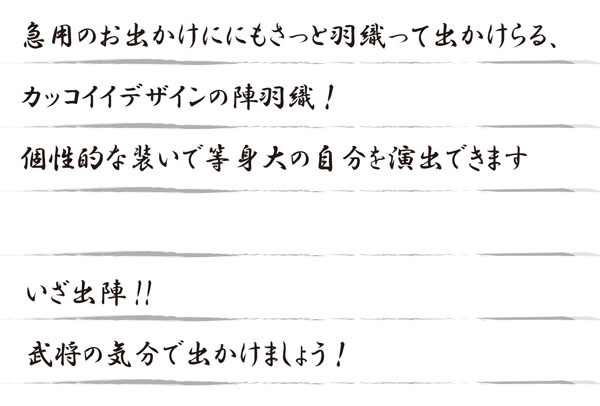 急用のお出かけににもさっと羽織って出かけらる、
カッコイイデザインの陣羽織！
個性的な装いで等身大の自分を演出できます
いざ出陣!!
武将の気分で出かけましょう！